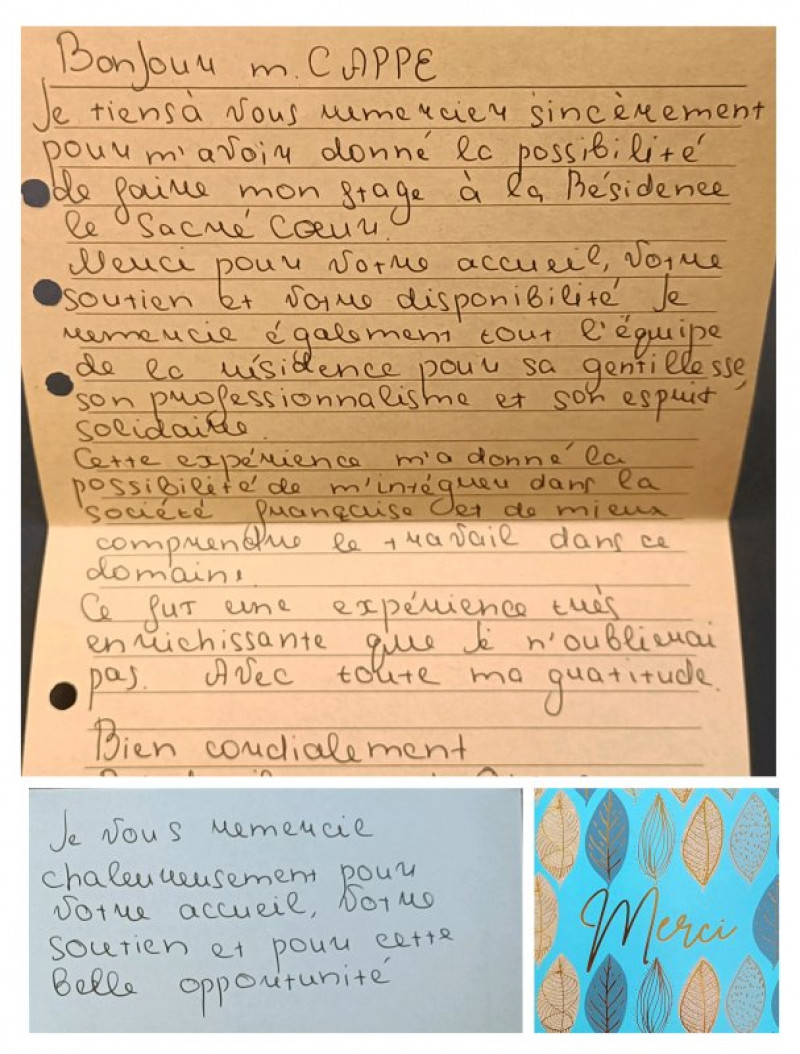 Bonjour m. CAPPE
Je tiens à vous remercier sincèrement
pour m'avoir donné la possibilité
de faire mon stage à la Résidence
le Sacré Cœur.
Merci pour votre accueil, votre
soutien et votre disponibilité Je
remercie également tout l'équipe
de la résidence pour sa gentillesse,
son professionnalisme et son esprit
solidaire.
Cette expérience m'a donné la
possibilité de m'intégrer dans la
société française et de mieux
comprendre le travail dans ce
domain.
Ce fut une expérience très
enrichissante que je n'oublierai
pas. Avec toute ma gratitude.
Bien cordialement
Je vous remercie
chaleureusement pour
votre accueil, votre
soutien et pour cette
belle opportunité
Merci